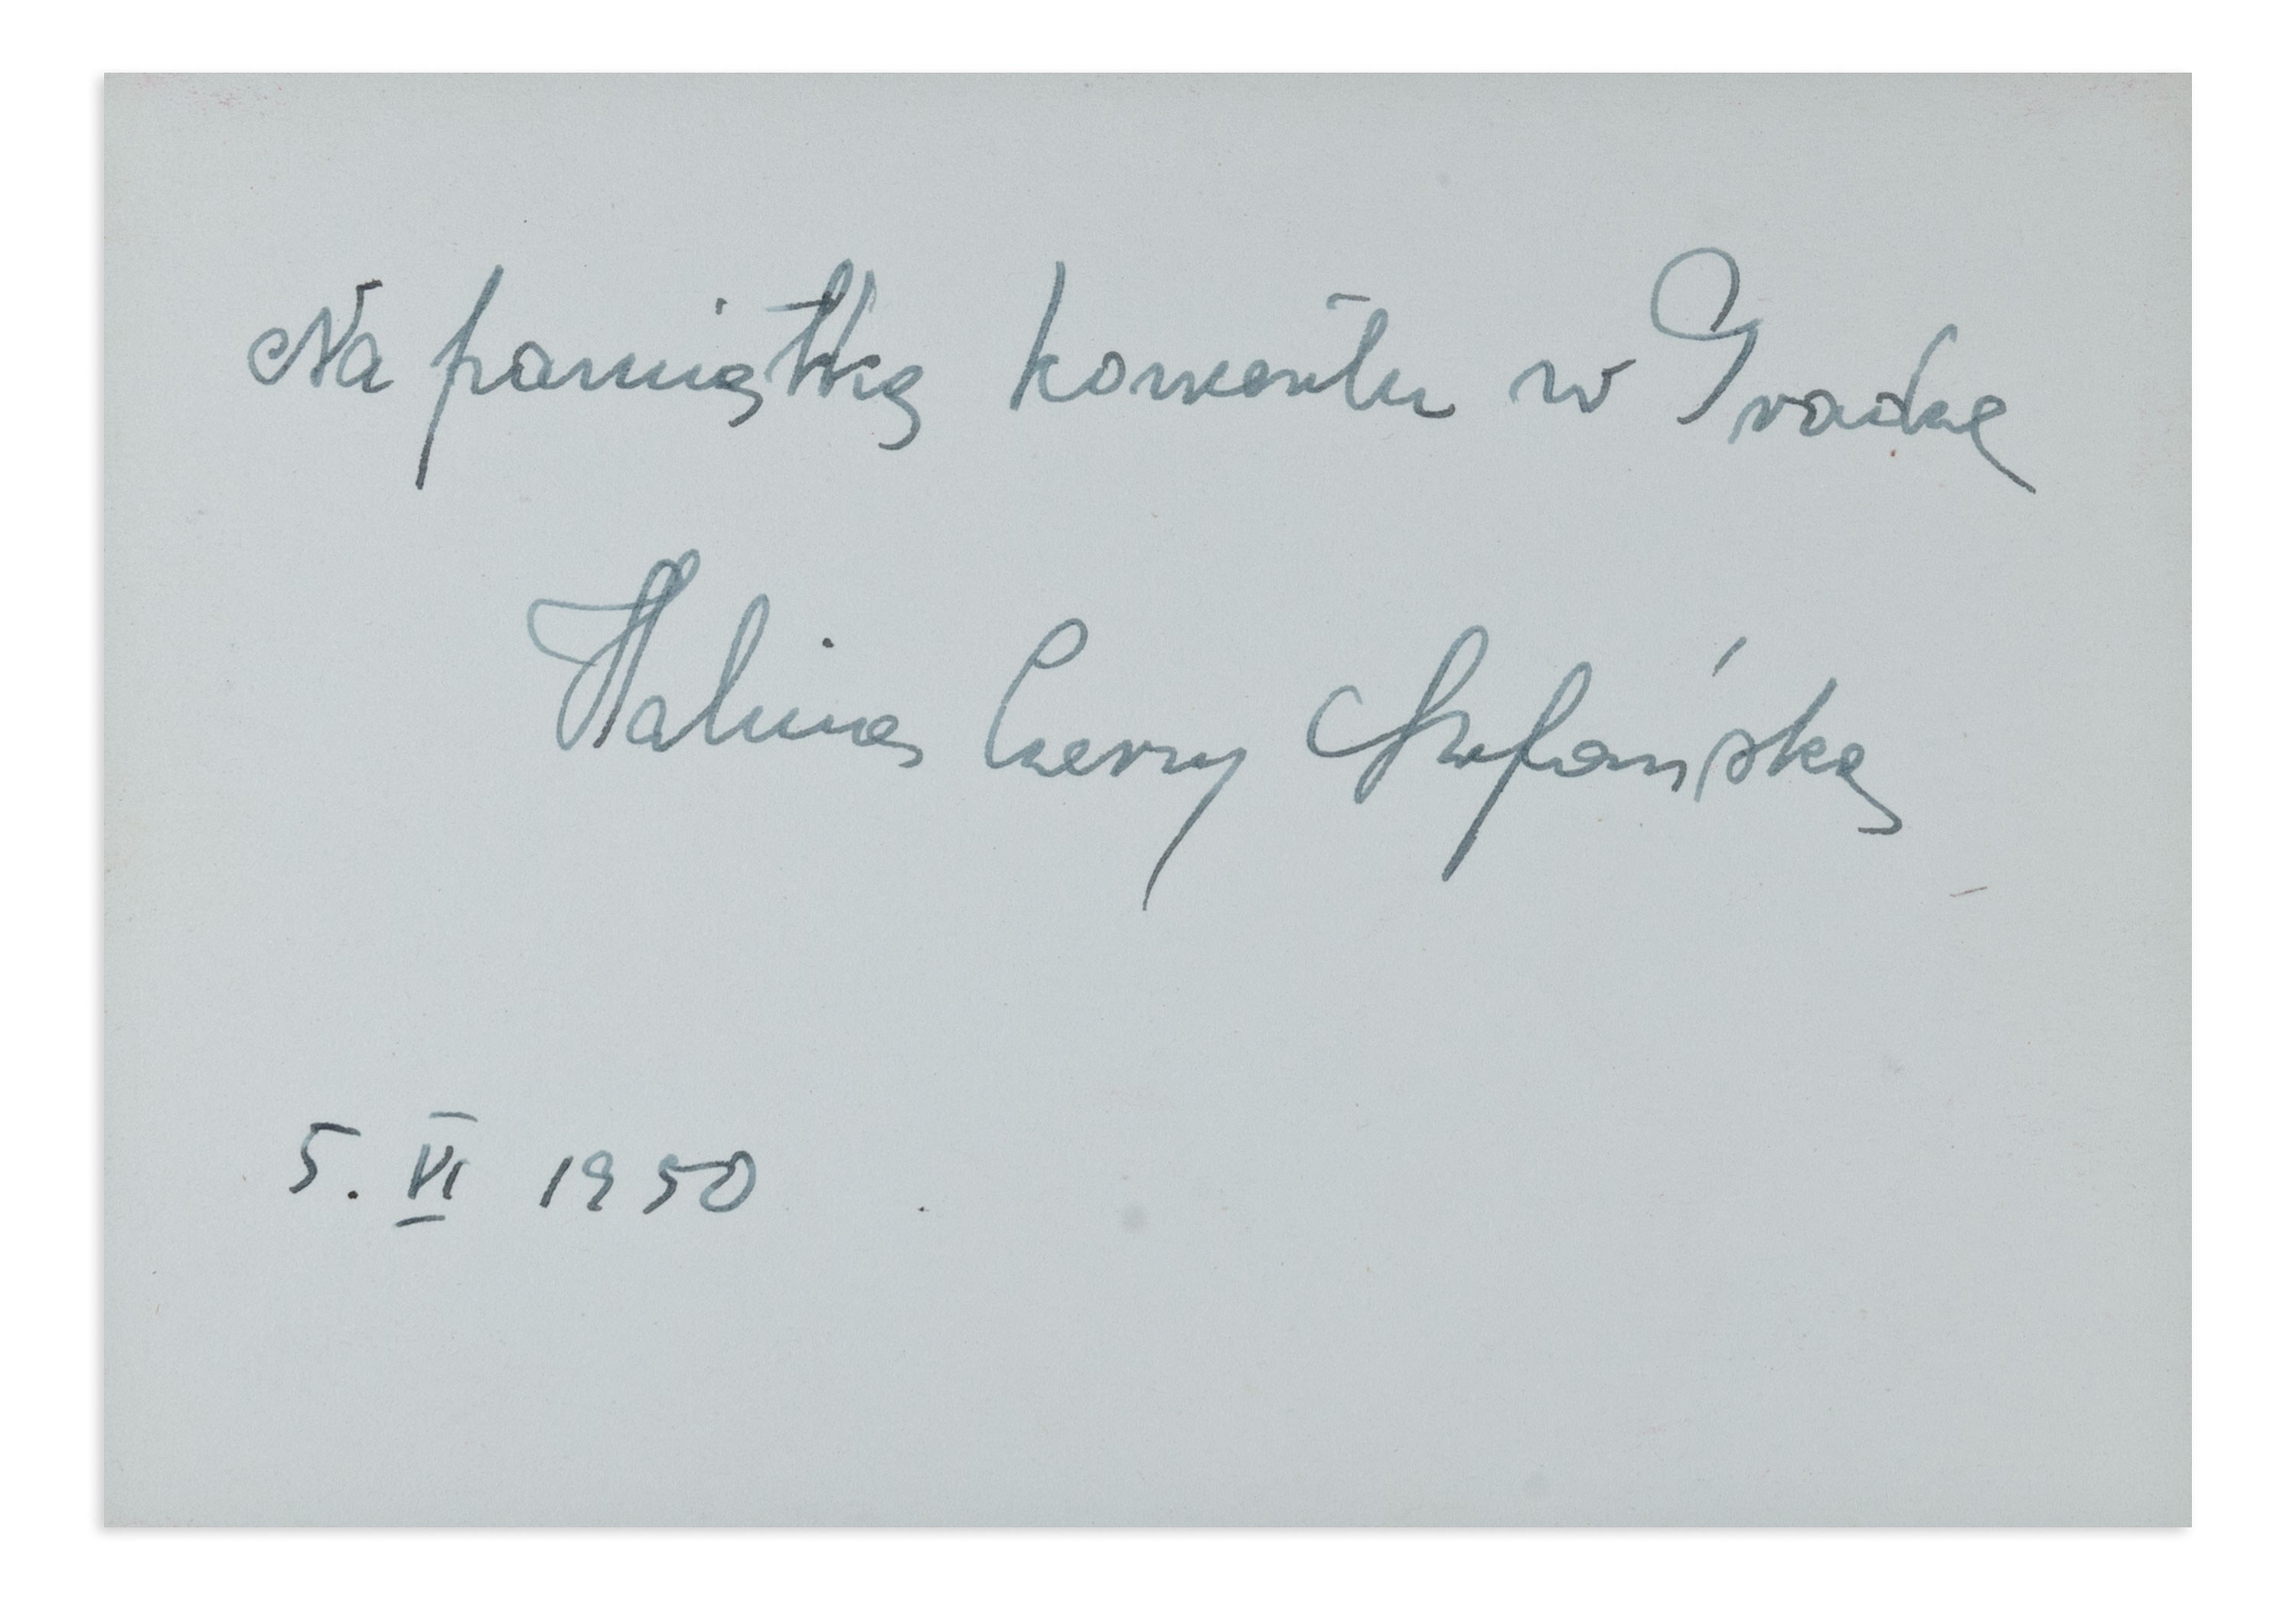 Na pamiątkę koncertu w Pradze
Halina Czerny Stefańska
5. VI 1950